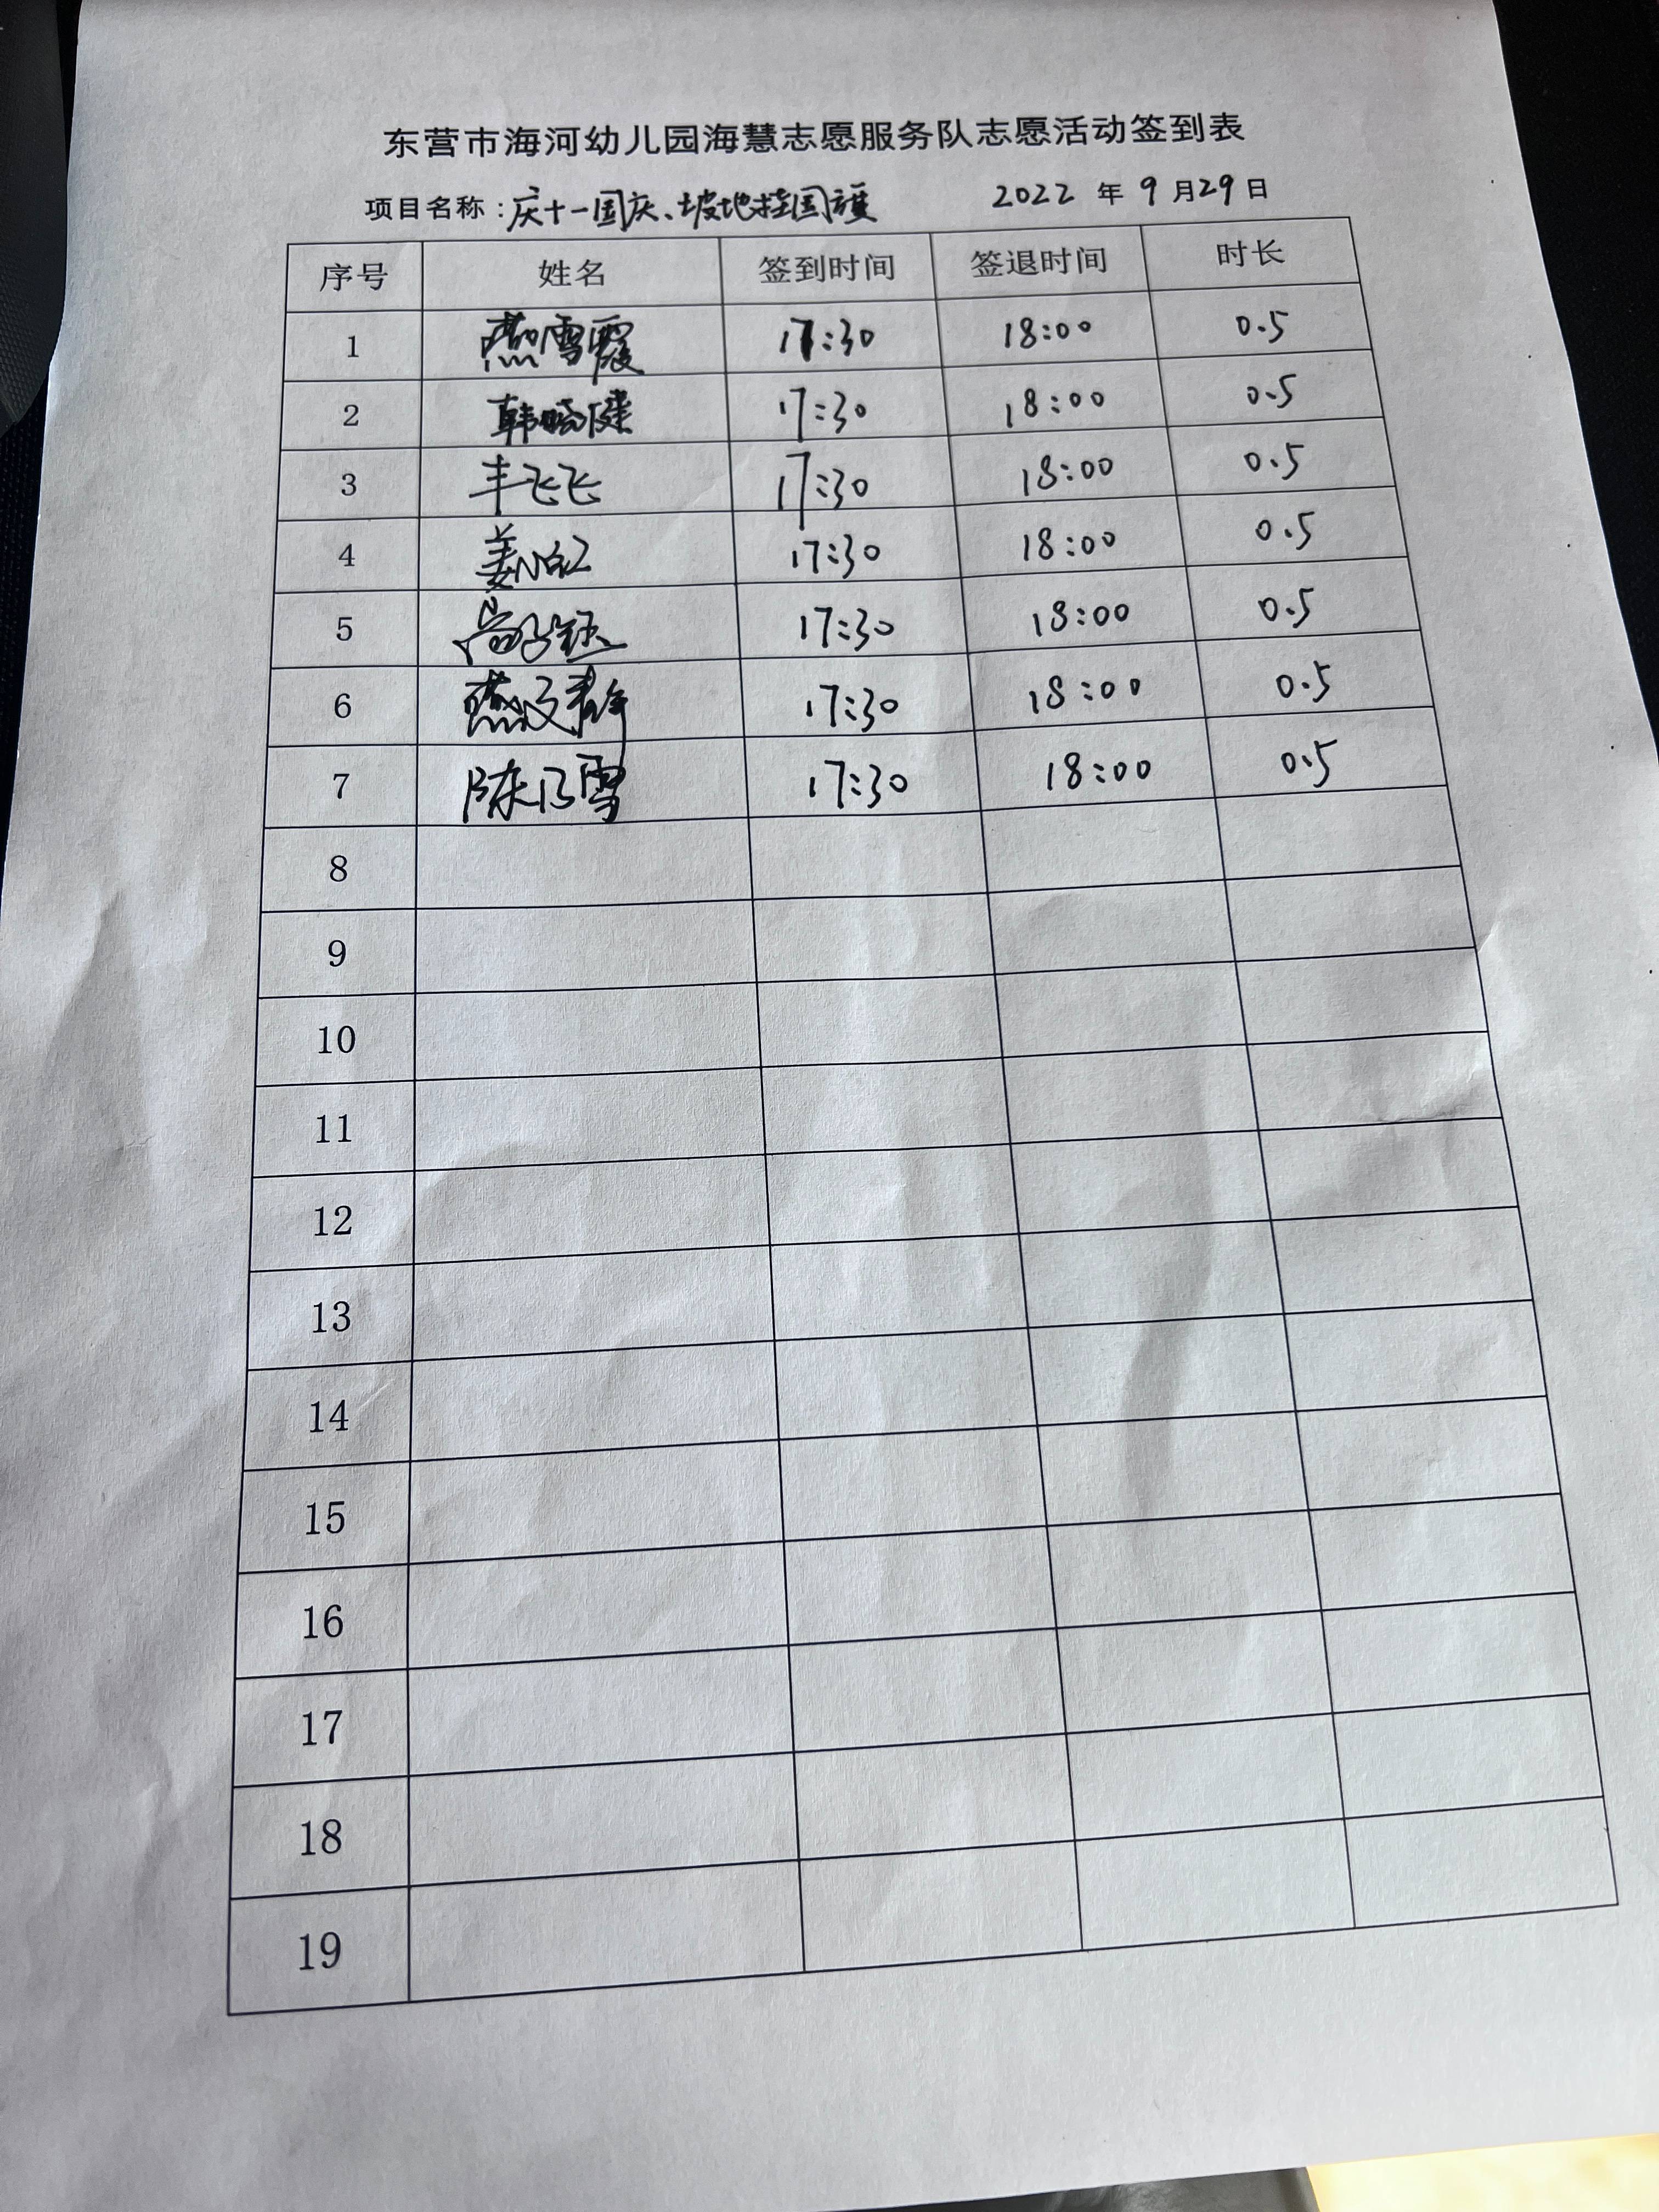 东营市海河幼儿园海慧志愿服务队志愿活动签到表
项目名称：庆十一国庆、坡地挂国旗 2022 年 9 月 29 日
序号 姓名 签到时间 签退时间 时长
1 燕雪霞 17:30 18:00 0.5
2 韩晓健 17:30 18:00 0.5
3 丰飞飞 17:30 18:00 0.5
4 姜 17:30 18:00 0.5
5 17:30 18:00 0.5
6 燕 静 17:30 18:00 0.5
7 陈 雪 17:30 18:00 0.5
8
9
10
11
12
13
14
15
16
17
18
19